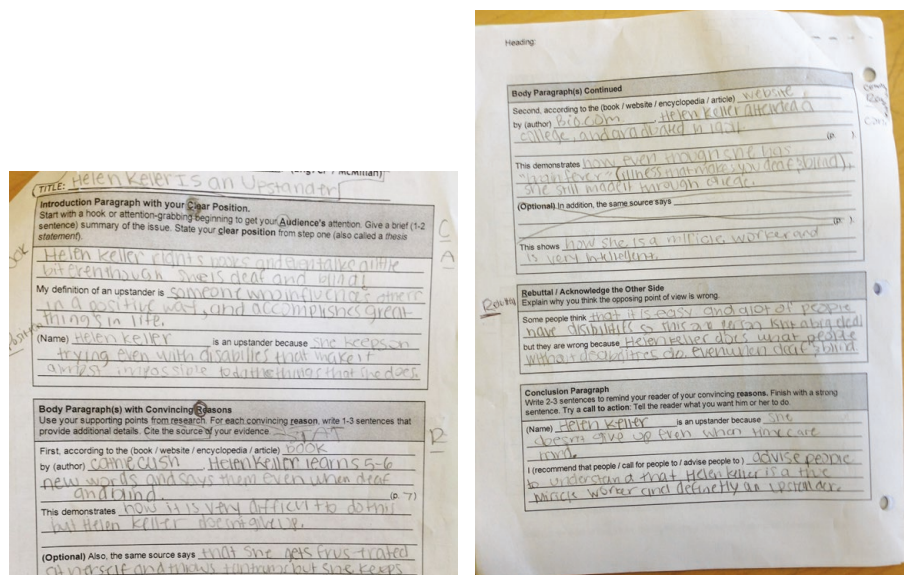 TITLE: Helen Keller Is an Upstander
Introduction Paragraph with your Clear Position.
Start with a hook or attention-grabbing beginning to get your Audience's attention. Give a brief (1-2
sentence) summary of the issue. State your clear position from step one (also called a thesis
statement).
Helen Keller rights books and even talks a little
bit eventhough she is deaf and blind!
My definition of an upstander is someone who influences others
in a positive way, and accomplishes great
things in life.
(Name) Helen Keller is an upstander because she keeps on
trying even with disabilies that make it
almost impossible to do the things that she does
C
A
Body Paragraph(s) with Convincing Reasons
Use your supporting points from research. For each convincing reason, write 1-3 sentences that
provide additional details. Cite the source of your evidence.
R
First, according to the (book / website / encyclopedia / article) book
by (author) Helen Keller learns 5-6
new words and says them even when deaf
and blind. (p. 7)
This demonstrates how it is very difficult to do this
but Helen Keller doesn't give up.
(Optional) Also, the same source says that she gets frus-trated
at herself and throws tantrums but she keeps
Heading:
Body Paragraph(s) Continued
Second, according to the (book / website / encyclopedia / article) website
by (author) Bio.com, Helen Keller attended a
college, and graduated in 1904.
(p. ).
This demonstrates how even though she has
"brain fever" (illness that make you deaf & blind),
she still made it through college.
(Optional) In addition, the same source says
(p. ).
This shows how she is a miricle worker and
is very intellegent.
Rebuttal / Acknowledge the Other Side
Explain why you think the opposing point of view is wrong.
Some people think that it is easy and alot of people
have disibilities so this isnt a big deal
but they are wrong because Helen Keller does what people
without do, even when deaf & blind.
Conclusion Paragraph
Write 2-3 sentences to remind your reader of your convincing reasons. Finish with a strong
sentence. Try a call to action: Tell the reader what you want him or her to do.
(Name) Helen Keller is an upstander because she
doesn't give up even when
I (recommend that people / call for people to / advise people to) advise people
to understand that Helen Keller is a true
miricle worker and definetly an upstander.